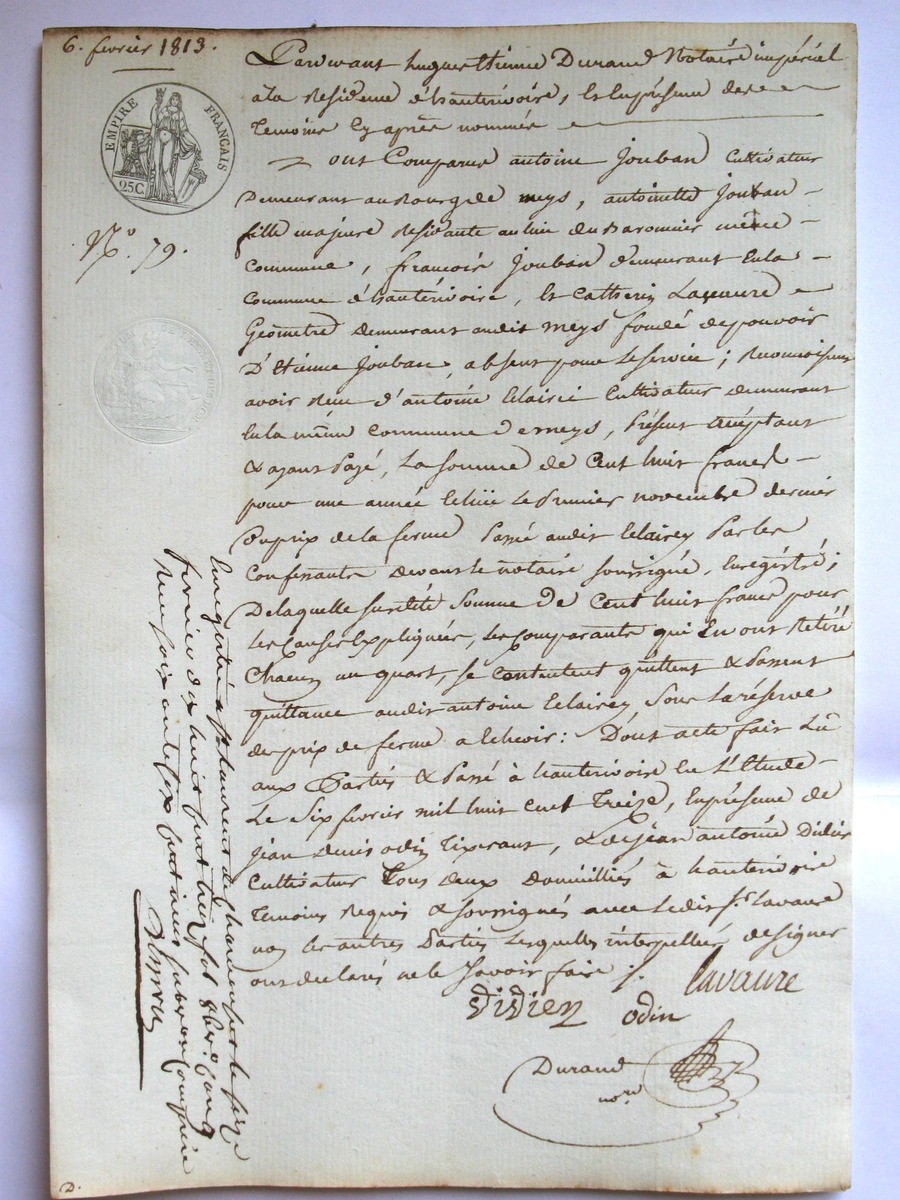 6. fevrier 1813.
EMPIRE FRANÇAIS
25C.
N.º 79.
Pardevant hugues Etienne Durand Notaire impérial
a la Residence d'hauterivoire, et En présence des
Temoins Cy après nommés
ont Comparus antoine Jouban Cultivateur
Demeurant au Bourg de meys, antoinette Jouban
fille majeure Residante au lieu du Baronnier même
Commune, françois Jouban demeurant En la
Commune d'hauterivoire, Et Catherin Lavaure
Geometre demeurant audit meys fondé de pouvoir
D'Etienne Jouban, absent pour le service; Reconnoissent
avoir Recu d'antoine Cultivateur demeurant
En la même Commune de meys, Présent acceptant
& ayant Payé, La somme de Cent huit francs
pour une année Echüe Le Premier novembre dernier
Du prix de la ferme Passé audit Par les
Confessants devant le notaire soussigné, Enregistré;
De laquelle susditte Somme de Cent huit francs pour
Les Causes Expliquées, Les Comparants qui En ont Retiré
Chacun un quart, se Contentent quittent & Passent
quittance audit antoine Sous La réserve
du prix de ferme a Echeoir: Dont acte fait Lû
aux Parties & Passé à hauterivoire En L'Etude
Le Six fevrier mil huit Cent Treize, En présence de
jean denis odin Tixerant, & de jean antoine Didier
Cultivateur Tous deux Domiciliés à hauterivoire
Temoins Requis & soussignés avec Ledit Sr. Lavaure
non les autres Parties Lesquelles interpellées de signer
ont déclarés ne le Savoir faire
lavaure
Didier odin
Durand
nore
Enregistré a St Laurent de Chamousset le seize
fevrier dix huit cent treize fol
Reçu soix
D.